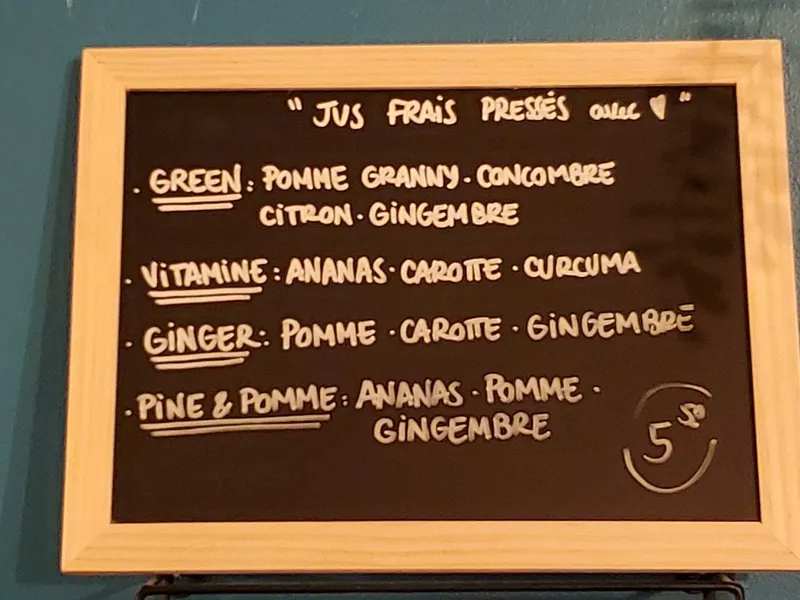 "JUS FRAIS PRESSÉS avec ♥"
. GREEN : POMME GRANNY . CONCOMBRE
CITRON . GINGEMBRE
. VITAMINE : ANANAS . CAROTTE . CURCUMA
. GINGER : POMME . CAROTTE . GINGEMBRE
. PINE & POMME : ANANAS . POMME .
GINGEMBRE
5 50